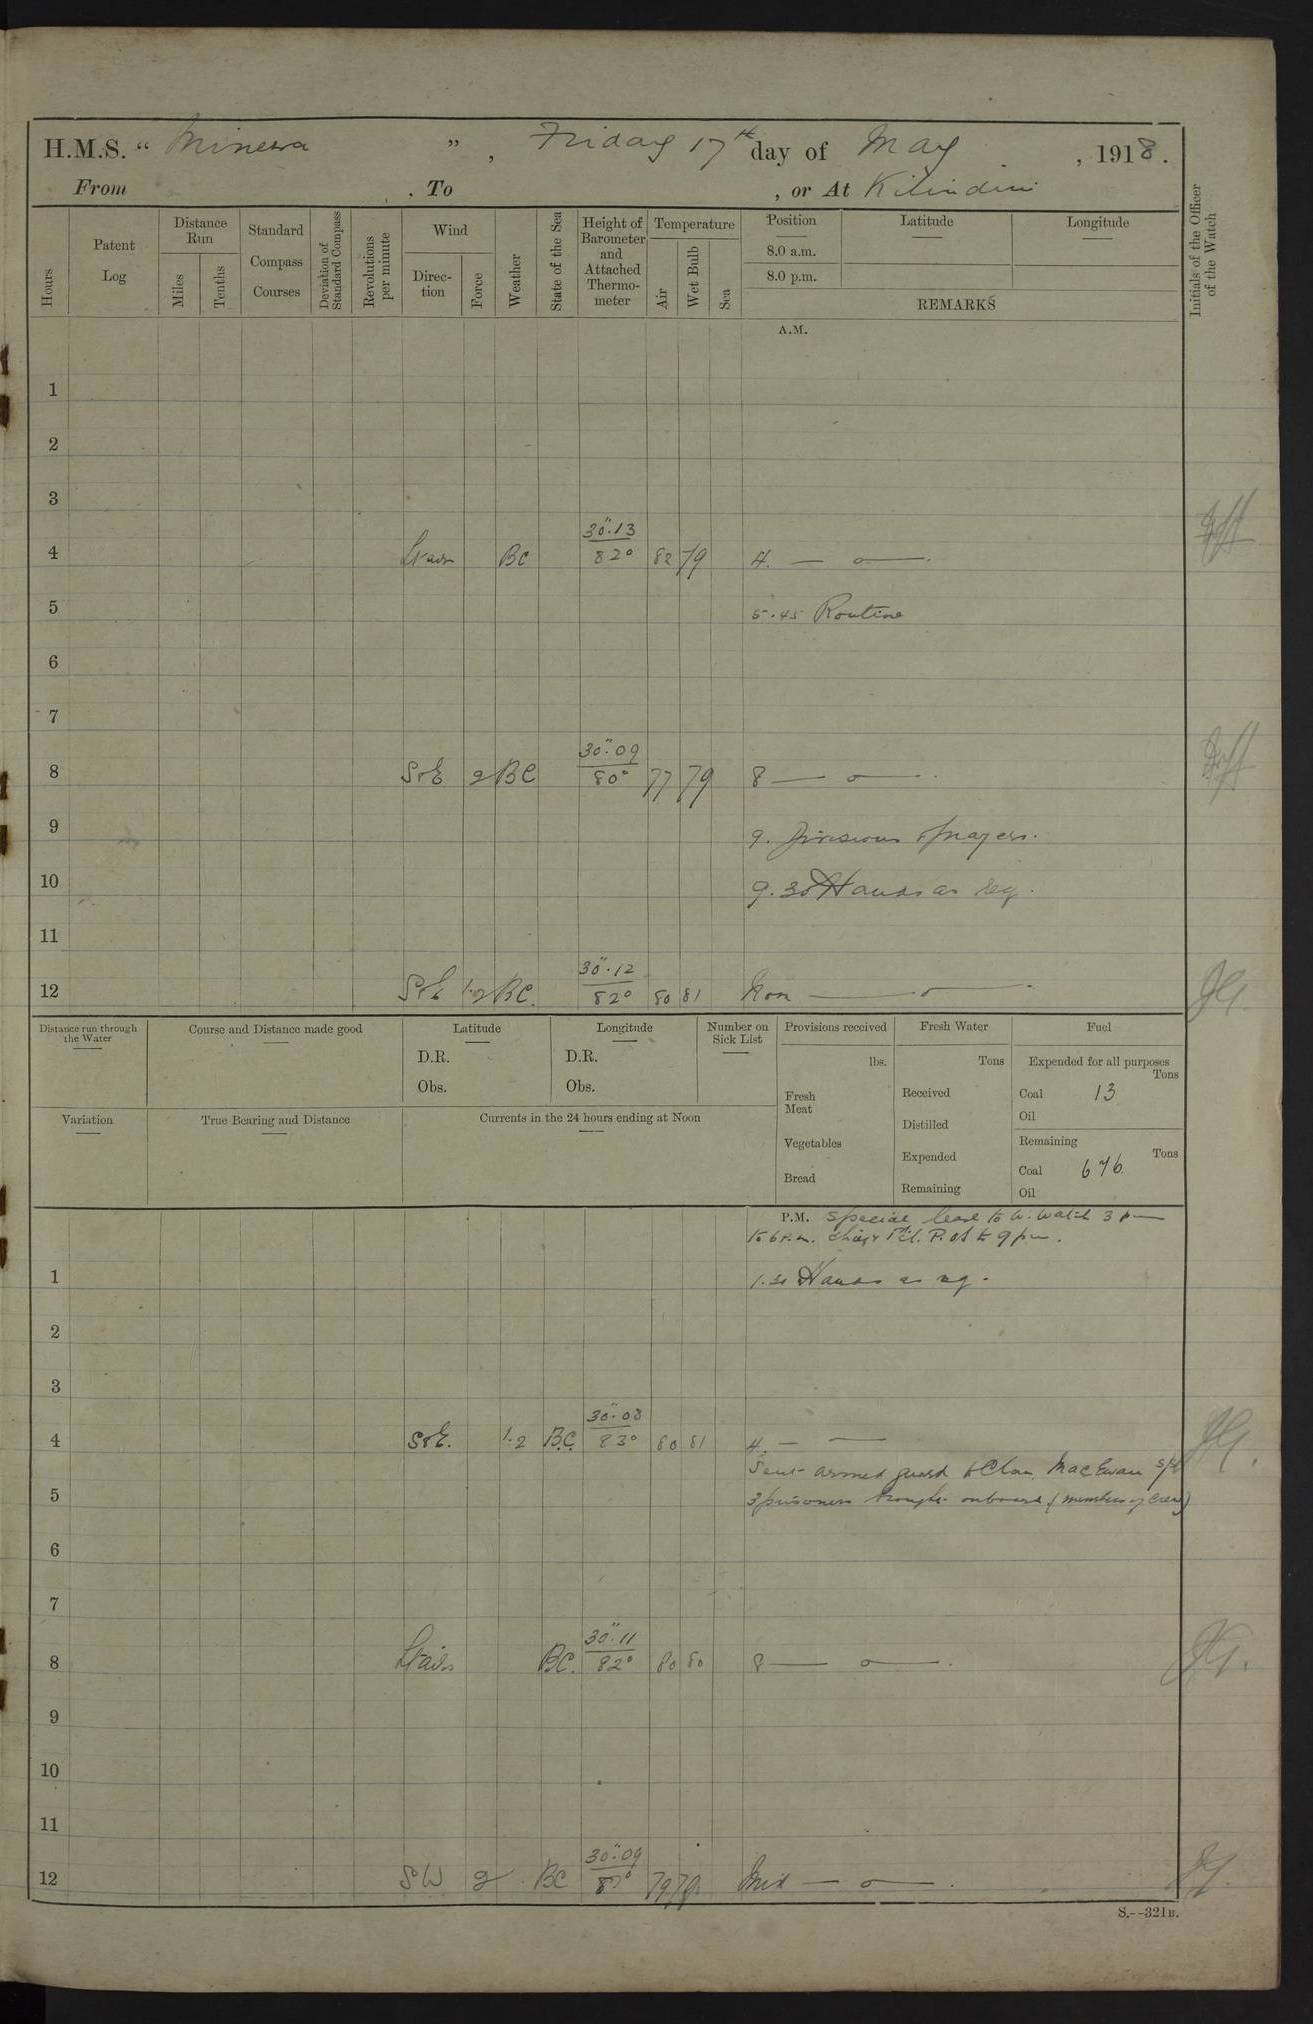 H.M.S. “ Minerva ” , Friday 17th day of May , 1918.
From . To , or At Kilindini
Hours
Patent Log
Distance Run
Miles
Tenths
Standard Compass Courses
Deviation of Standard Compass
Revolutions per minute
Wind
Direc-tion
Force
Weather
State of the Sea
Height of Barometer and Attached Thermo-meter
Temperature
Air
Wet Bulb
Sea
Position
8.0 a.m.
8.0 p.m.
Latitude
Longitude
REMARKS
Initials of the Officer of the Watch
A.M.
1
2
3
4 Lt airs BC 30".13 82° 82 79 4. — o —.
5 5.45 Routine
6
7
8 S & E 2 BC 30".09 80° 77 79 8 — o — .
9 9. Divisions & prayers.
10 9.30 Hands as req.
11
12 S & E 1.2 BC. 30".12 82° 80 81 Noon — o — .
Distance run through the Water
Course and Distance made good
Latitude
D.R.
Obs.
Longitude
D.R.
Obs.
Number on Sick List
Provisions received
lbs.
Fresh Meat
Vegetables
Bread
Fresh Water
Tons
Received
Distilled
Expended
Remaining
Fuel
Expended for all purposes
Tons
Coal 13
Oil
Remaining
Tons
Coal 676
Oil
Variation
True Bearing and Distance
Currents in the 24 hours ending at Noon
P.M. Special leave to W. Watch 3 pm
to 6 p.m. Chief & 1st Cl. P.Os to 9 pm.
1 1.30 Hands as req.
2
3
4 S & E. 1.2 B.C. 30".08 83° 80 81 4. — —
Sent armed guard to Clan MacEwan s/s
5 3 prisoners brought onboard (members of crew)
6
7
8 Lt airs BC. 30".11 82° 80 80 8 — o — .
9
10
11
12 SW 2 BC 30".09 79 79. Mid — o — .
S.--321B.